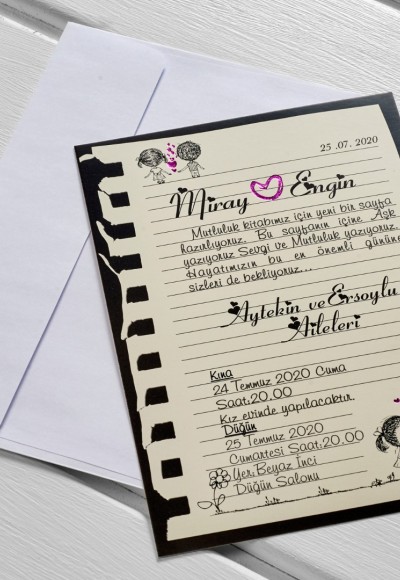 25 .07. 2020
Miray Engin
Mutluluk kitabımız için yeni bir sayfa
hazırlıyoruz. Bu sayfanın içine Aşk
yazıyoruz Sevgi ve Mutluluk yazıyoruz.
Hayatımızın bu en önemli gününe
sizleri de bekliyoruz...
Aytekin ve Ersoylu
Aileleri
Kına
24 Temmuz 2020 Cuma
Saat:20.00
Kız evinde yapılacaktır.
Düğün
25 Temmuz 2020
Cumartesi Saat:20.00
Yer:Beyaz İnci
Düğün Salonu